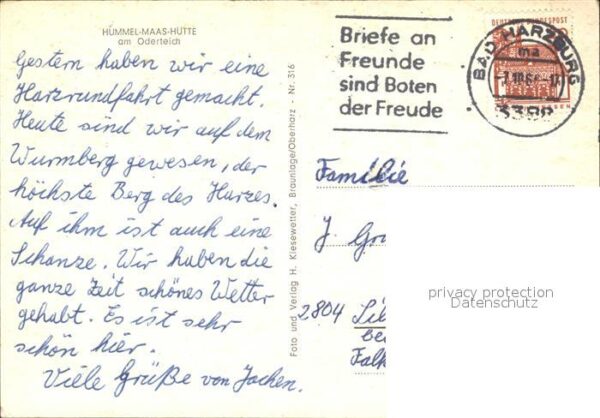 HUMMEL-MAAS-HÜTTE
am Oderteich
Gestern haben wir eine
Harzrundfahrt gemacht.
Heute sind wir auf dem
Wurmberg gewesen, der
höchste Berg des Harzes.
Auf ihm ist auch eine
Schanze. Wir haben die
ganze Zeit schönes Wetter
gehabt. Es ist sehr
schön hier.
Viele Grüße von Jochen.
Foto und Verlag H. Kiesewetter, Braunlage/Oberharz - Nr. 316
Briefe an
Freunde
sind Boten
der Freude
DEUTSCHE BUNDESPOST
BAD HARZBURG
ma
3388
Familie
J.
2804
privacy protection
Datenschutz